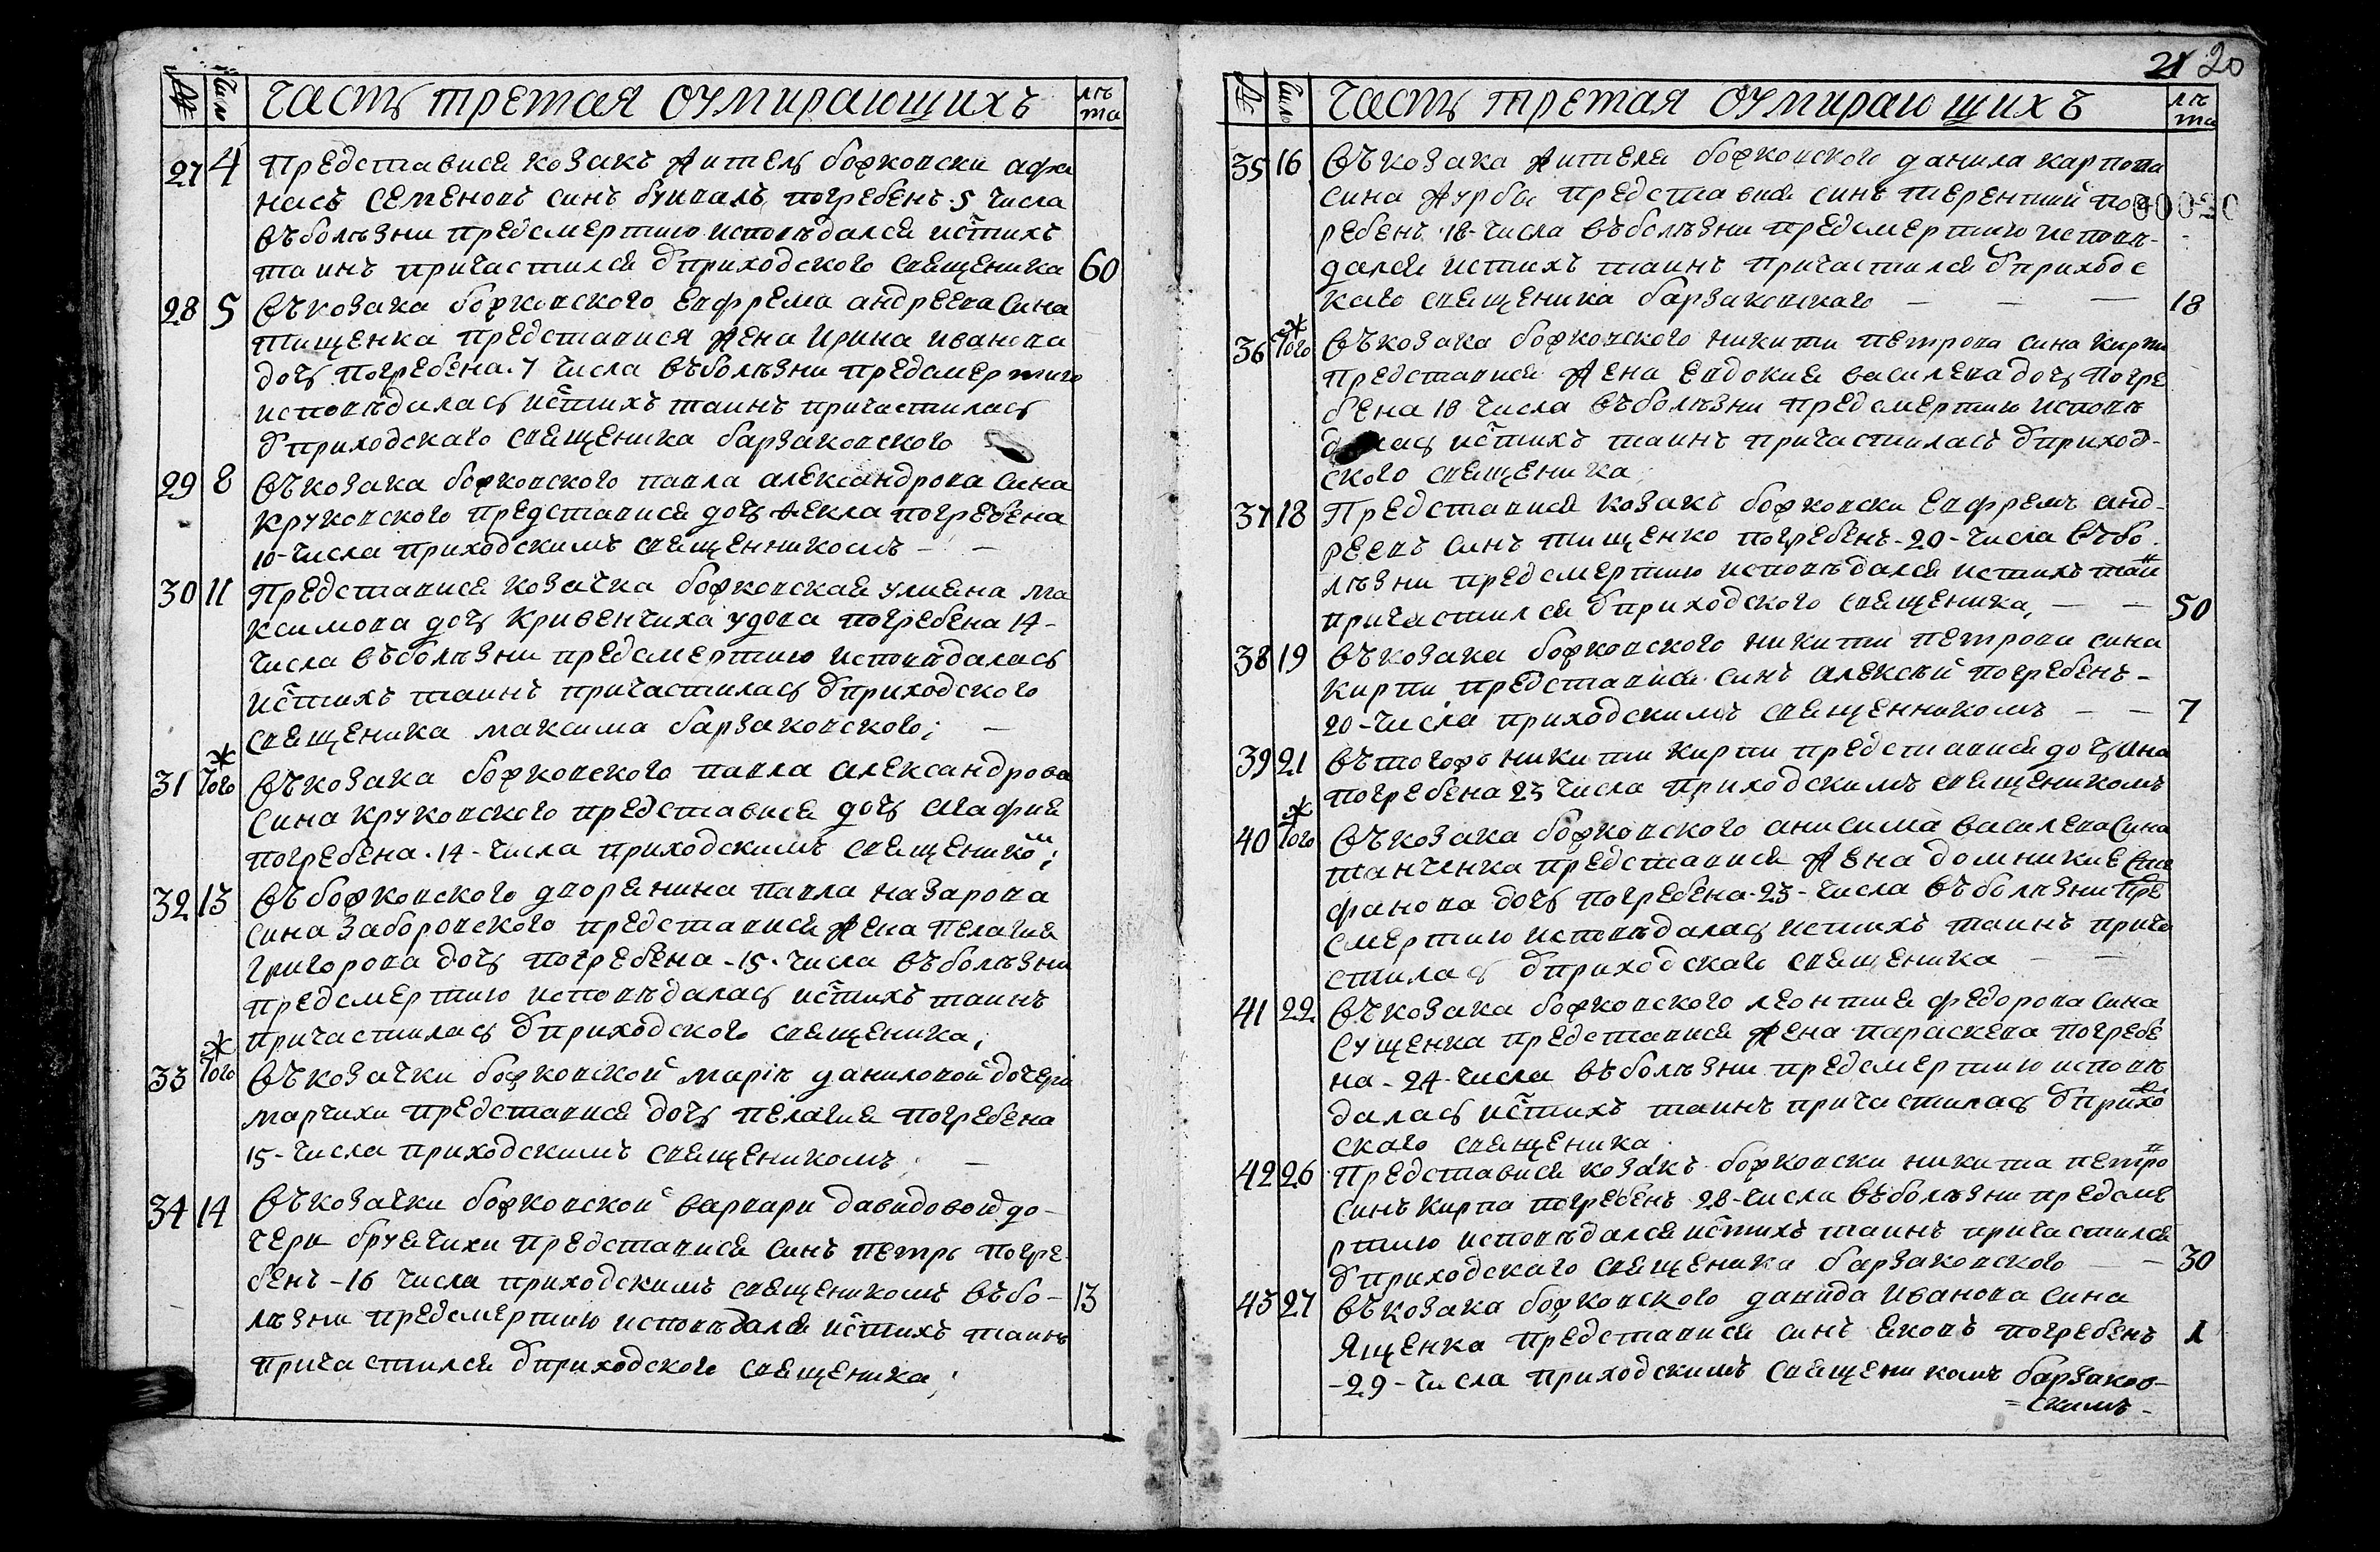 № Число Часть третая оумирающихъ лѣта
27 4 Представися козакъ житель божковски афа
насъ семеновъ синъ бувалъ погребенъ 5 числа
въболѣзни предсмертию исповѣдался истихъ
таинъ причастился ѿприходского священика 60
28 5 Въкозака божковского евфрема андреева сина
тищенка представися жена ирина иванова
дочь погребена 7 числа въболѣзни предсмертию
исповѣдалась истихъ таинъ причастилась
ѿприходскаго священика барзаковского
29 8 Въкозака божковского павла александрова сина
круковского представися дочь фекла погребена
10 числа приходскимъ священникомъ —
30 11 Представися козачка божковская улияна ма
ксимова дочь кривенчиха удова погребена 14-
числа въболѣзни предсмертию исповѣдалась
истихъ таинъ причастилась ѿприходского
священика максима барзаковского; —
31 Тогож Въкозака божковского павла александрова
сина круковского представися дочь агафия
погребена 14-числа приходскимъ священиком;
32 13 Въбожковского дворянина павла назарова
сина заборовского представися жена пелагия
григорова дочь погребена -15- числа въболѣзни
предсмертию исповѣдалась истихъ таинъ
причастилась ѿприходского священика;
33 Тогож Въкозачки божковской маріи даниловой дочери
марчихи представися дочь пелагия погребена
15-числа приходскимъ священикомъ; —
34 14 Въкозачки божковской варвари давидовой до-
чери бруячихи представися синъ петръ погре-
бенъ -16 числа приходскимъ священикомъ въбо- 13
лѣзни предсмертию исповѣдался истихъ таинъ
причастился ѿприходского священика;
21 20
№ Число Часть третая оумирающихъ лѣта
35 16 Въкозака жителя божковского данила карпова
сина журби представися синъ терентий пог
00020
ребенъ 18-числа въболѣзни предсмертию исповѣ-
дался истихъ таинъ причастился ѿприходс
каго священика барзаковскаго — — — 18
36 Тогож Въкозака божковского никити петрова сина кирпи
представися жена евдокия василева дочь погре
бена 18 числа въболѣзни предсмертию исповѣ
далась истихъ таинъ причастиласъ ѿприход-
ского священика;
37 18 Представися козакъ божковски евфремъ анд-
реевъ синъ тищенко погребенъ -20- числа въбо-
лѣзни предсмертию исповѣдался истихъ таин
причастился ѿприходского священика, — — 50
38 19 Въкозака божковского никити петрова сина
кирпи представися синъ алексѣй погребенъ -
20-числа приходскимъ священникомъ — — 7
39 21 Вътогожъ никити кирпи представися дочь ана
погребена 23 числа приходскимъ священикомъ
40 Тогож Въкозака божковского анисима василева сина
танченка представися жена домникия сте
фанова дочь погребена -23- числа въболѣзни пред
смертию исповѣдалась истихъ таинъ прича
стилась ѿприходскаго священика — —
41 22 Въкозака божковского леонтия федорова сина
сущенка представися жена параскева погребе
на -24- числа въболѣзни предсмертию исповѣ
далась истихъ таинъ причастилась ѿприход
скаго священика
42 26 Представися козакъ божковски никита петров
синъ кирпа погребенъ 28-числа въболѣзни предсме
ртию исповѣдался истихъ таинъ причастился
ѿприходскаго священика барзаковского — — 30
43 27 Въкозака божковского давида иванова сина
ященка представися синъ яковъ погребенъ 1
-29- числа приходскимъ священикомъ барзаков-
=скимъ-